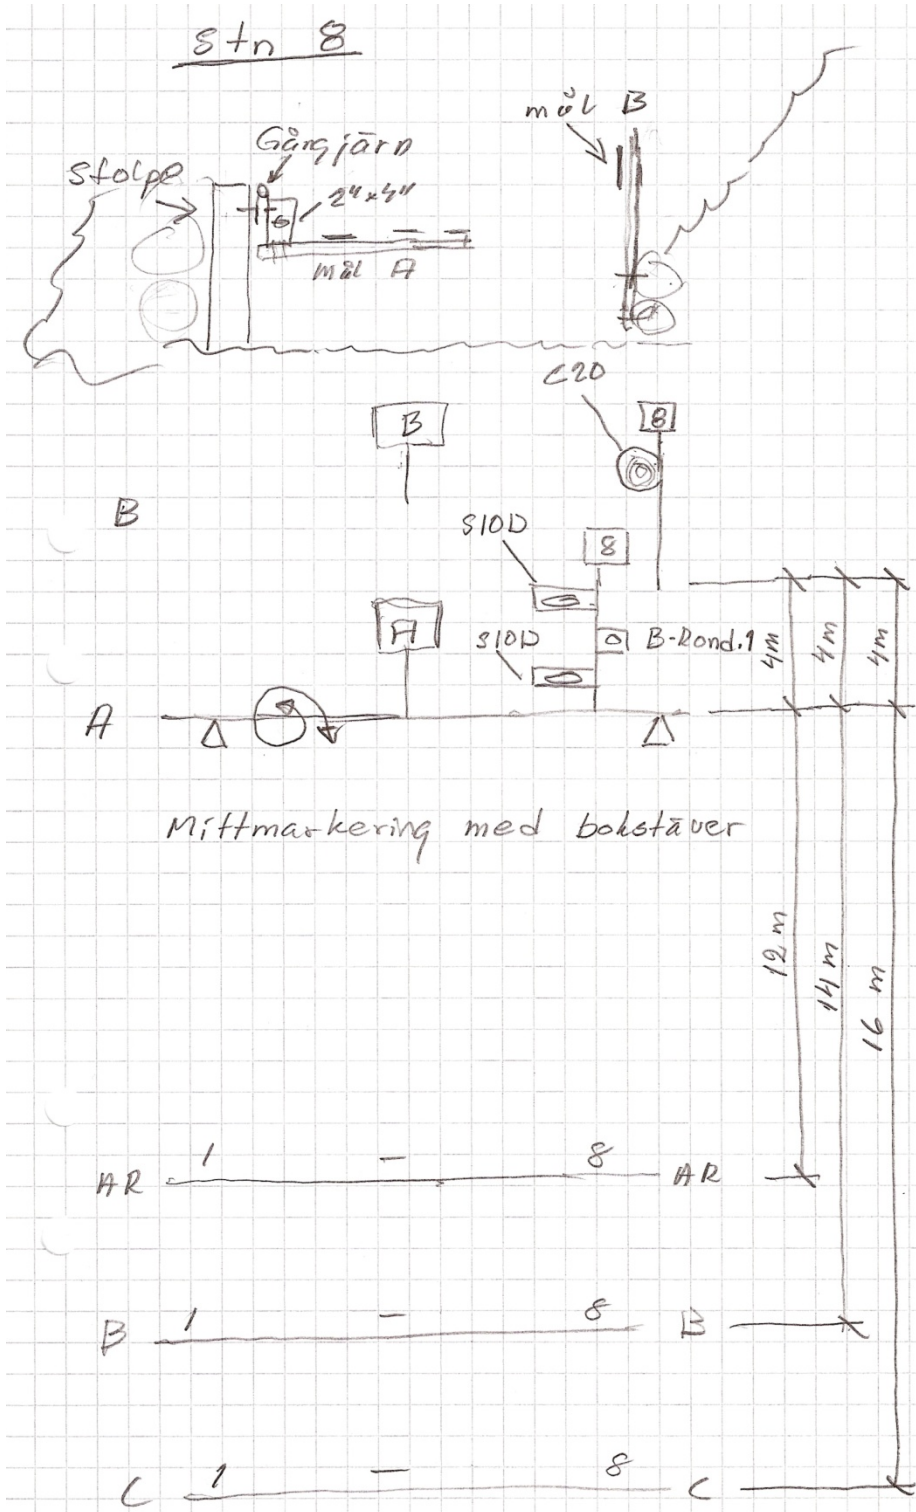 Stn 8
mål B
Gångjärn
Stolpe
2"x4"
mål A
C20
B
8
B
S10D
8
A
S10D
B-Rond.1
4m
4m
4m
A
Mittmarkering med bokstäver
12 m
14 m
16 m
AR 1 - 8 AR
B 1 - 8 B
C 1 - 8 C